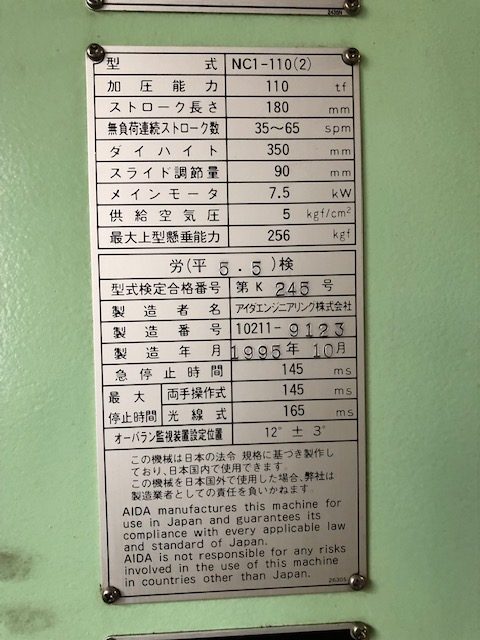 26305
型式 NC1-110(2)
加圧能力 110 tf
ストローク長さ 180 mm
無負荷連続ストローク数 35~65 spm
ダイハイト 350 mm
スライド調節量 90 mm
メインモータ 7.5 kW
供給空気圧 5 kgf/cm²
最大上型懸垂能力 256 kgf
労(平 5.5)検
型式検定合格番号 第 K 245 号
製造者名 アイダエンジニアリング株式会社
製造番号 10211-9123
製造年月 1995年 10月
急停止時間 145 ms
最大停止時間 両手操作式 145 ms
光線式 165 ms
オーバラン監視装置設定位置 12° ± 3°
この機械は日本の法令 規格に基づき製作し
ており、日本国内で使用できます。
この機械を日本国外で使用した場合、弊社は
製造業者としての責任を負いかねます。
AIDA manufactures this machine for
use in Japan and guarantees its
compliance with every applicable law
and standard of Japan.
AIDA is not responsible for any risks
involved in the use of this machine
in countries other than Japan.
26305